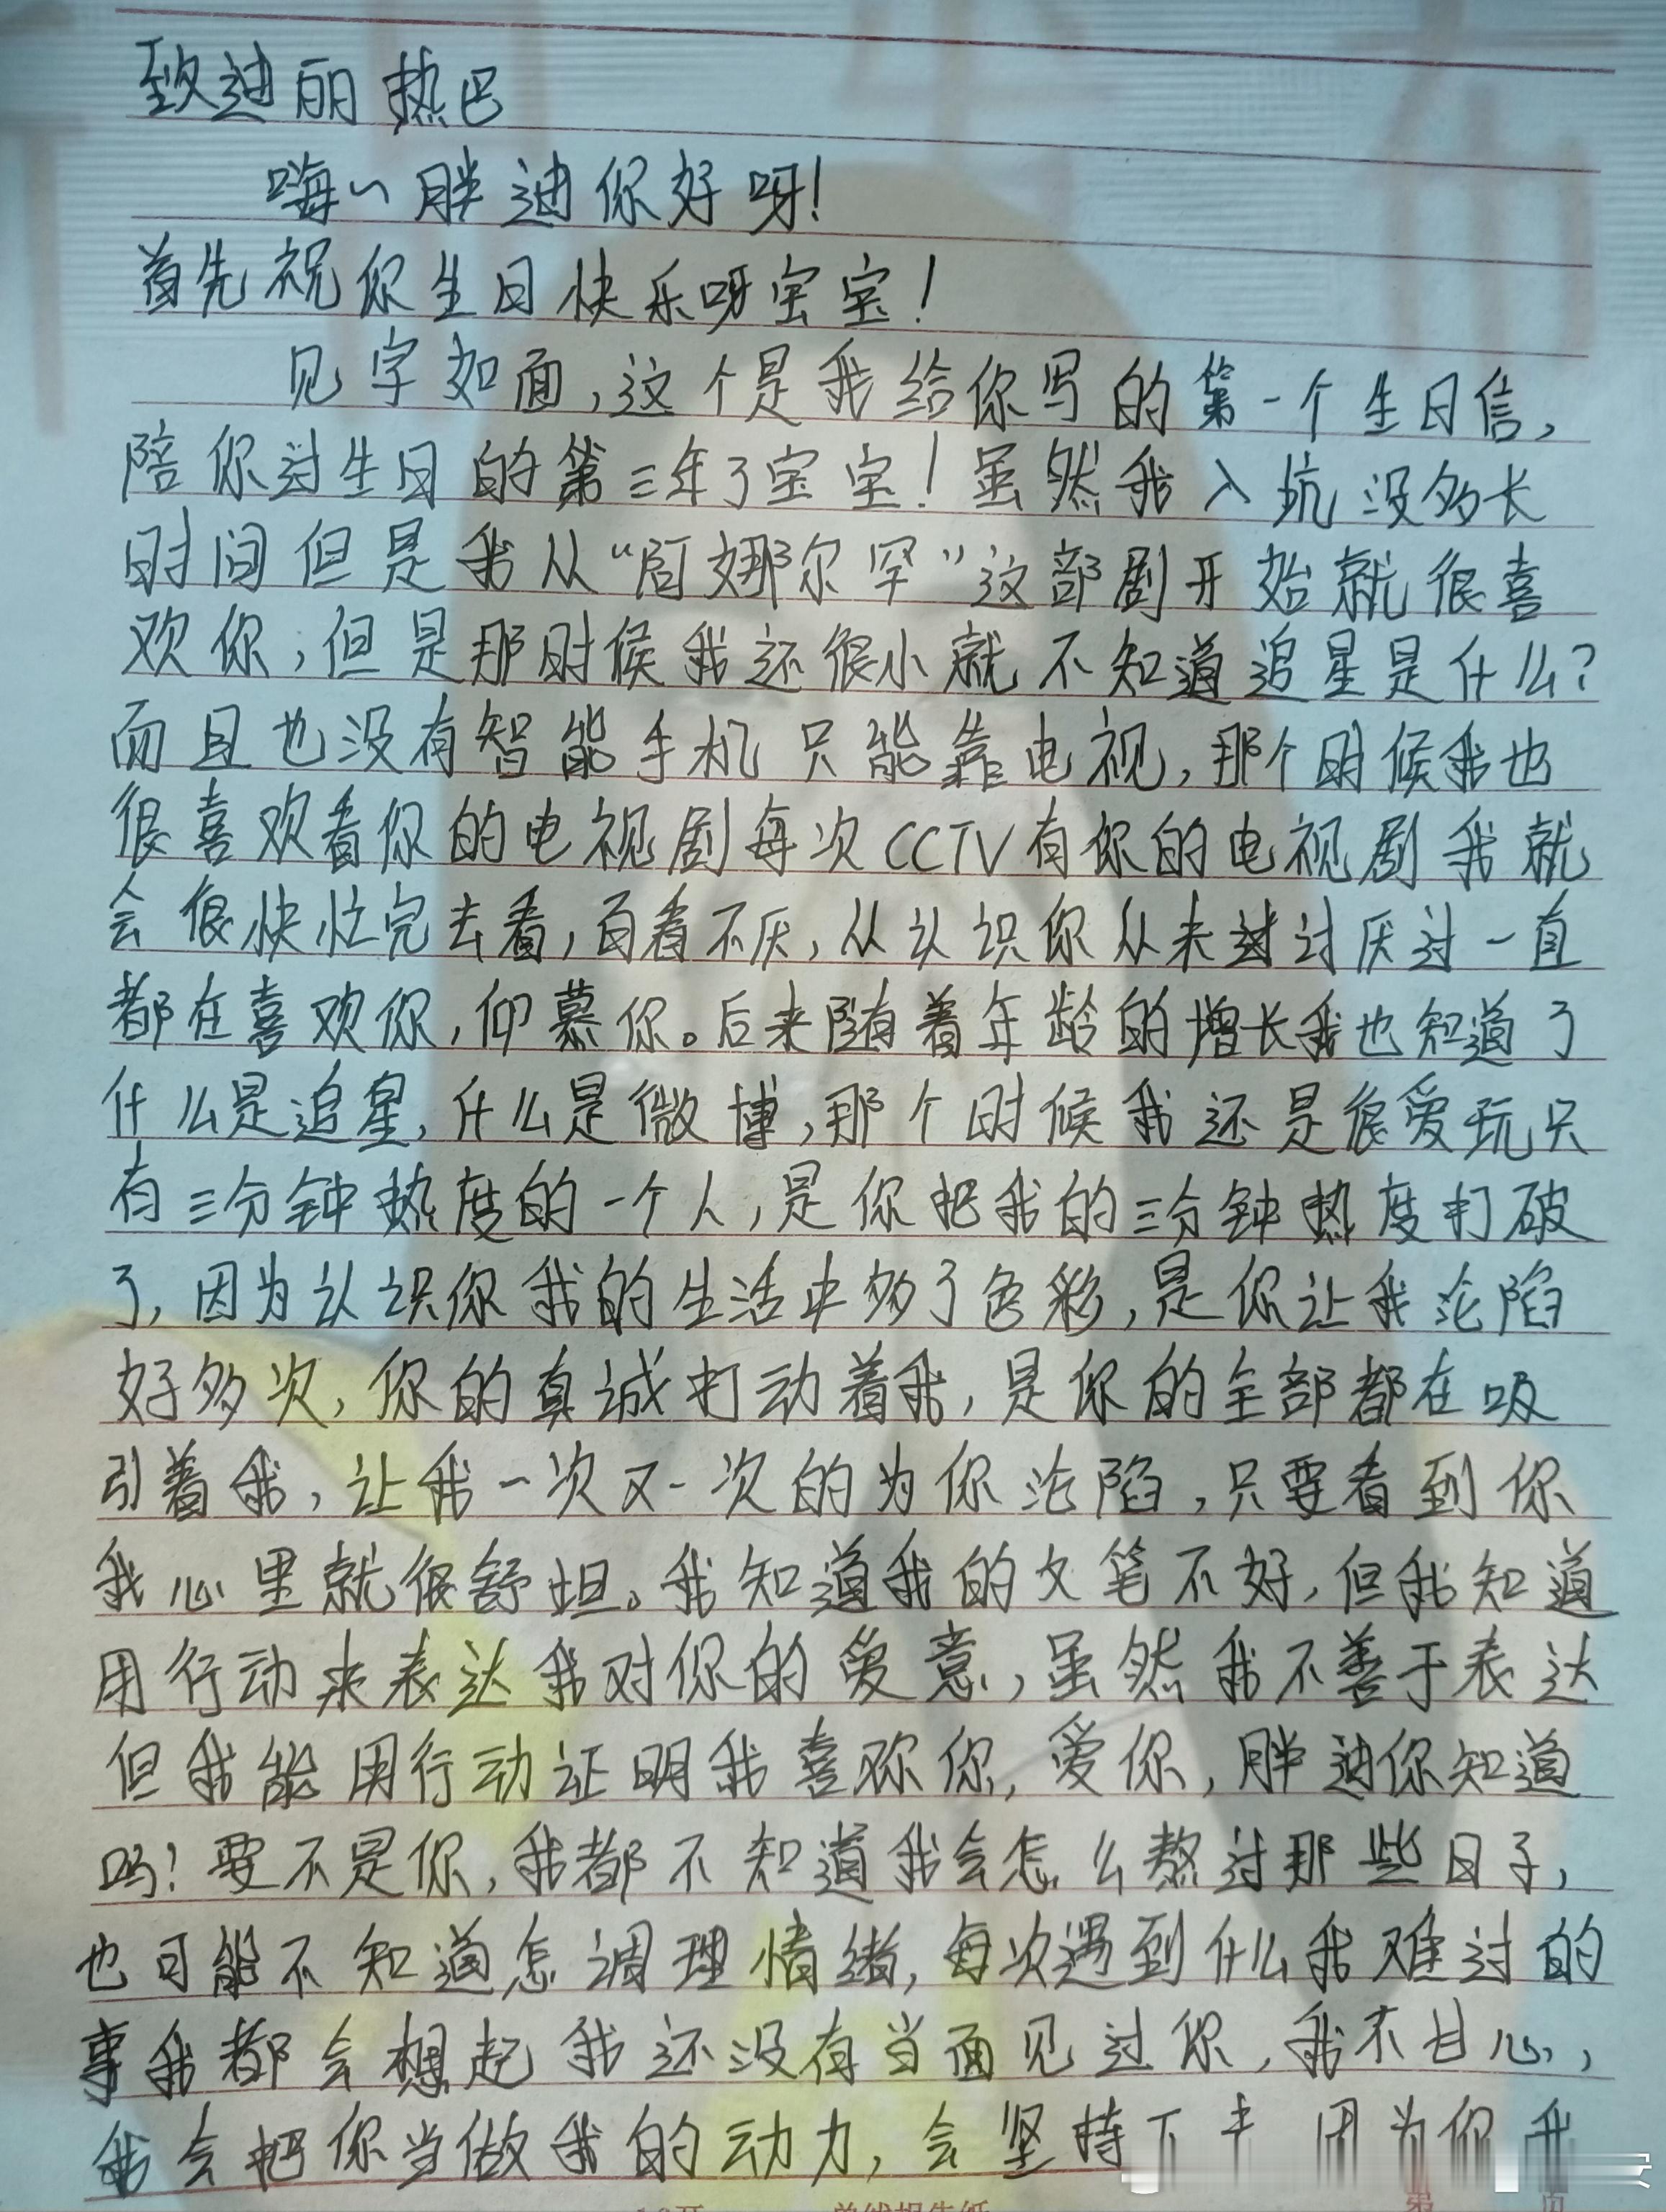 致迪丽热巴
嗨~胖迪你好呀!
首先祝你生日快乐呀宝宝!
见字如面,这个是我给你写的第一个生日信,
陪你过生日的第三年了宝宝!虽然我入坑没多长
时间但是我从“阿娜尔罕”这部剧开始就很喜
欢你,但是那时候我还很小就不知道追星是什么?
而且也没有智能手机只能靠电视,那个时候我也
很喜欢看你的电视剧每次CCTV有你的电视剧我就
会很快忙完去看,百看不厌,从认识你从未过讨厌过一直
都在喜欢你,仰慕你。后来随着年龄的增长我也知道了
什么是追星,什么是微博,那个时候我还是很爱玩只
有三分钟热度的一个人,是你把我的三分钟热度打破
了,因为认识你我的生活中多了色彩,是你让我沦陷
好多次,你的真诚打动着我,是你的全部都在吸
引着我,让我一次又一次的为你沦陷,只要看到你
我心里就很舒坦。我知道我的文笔不好,但我知道
用行动来表达我对你的爱意,虽然我不善于表达
但我能用行动证明我喜欢你,爱你,胖迪你知道
吗?要不是你,我都不知道我会怎么熬过那些日子,
也可能不知道怎调理情绪,每次遇到什么我难过的
事我都会想起我还没有当面见过你,我不甘心,
我会把你当做我的动力,会坚持下去 因为你我